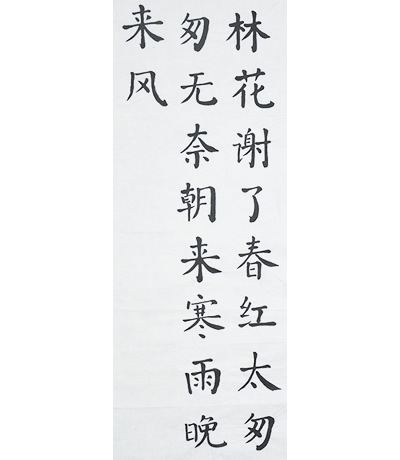 林花谢了春红太匆
匆无奈朝来寒雨晚
来风